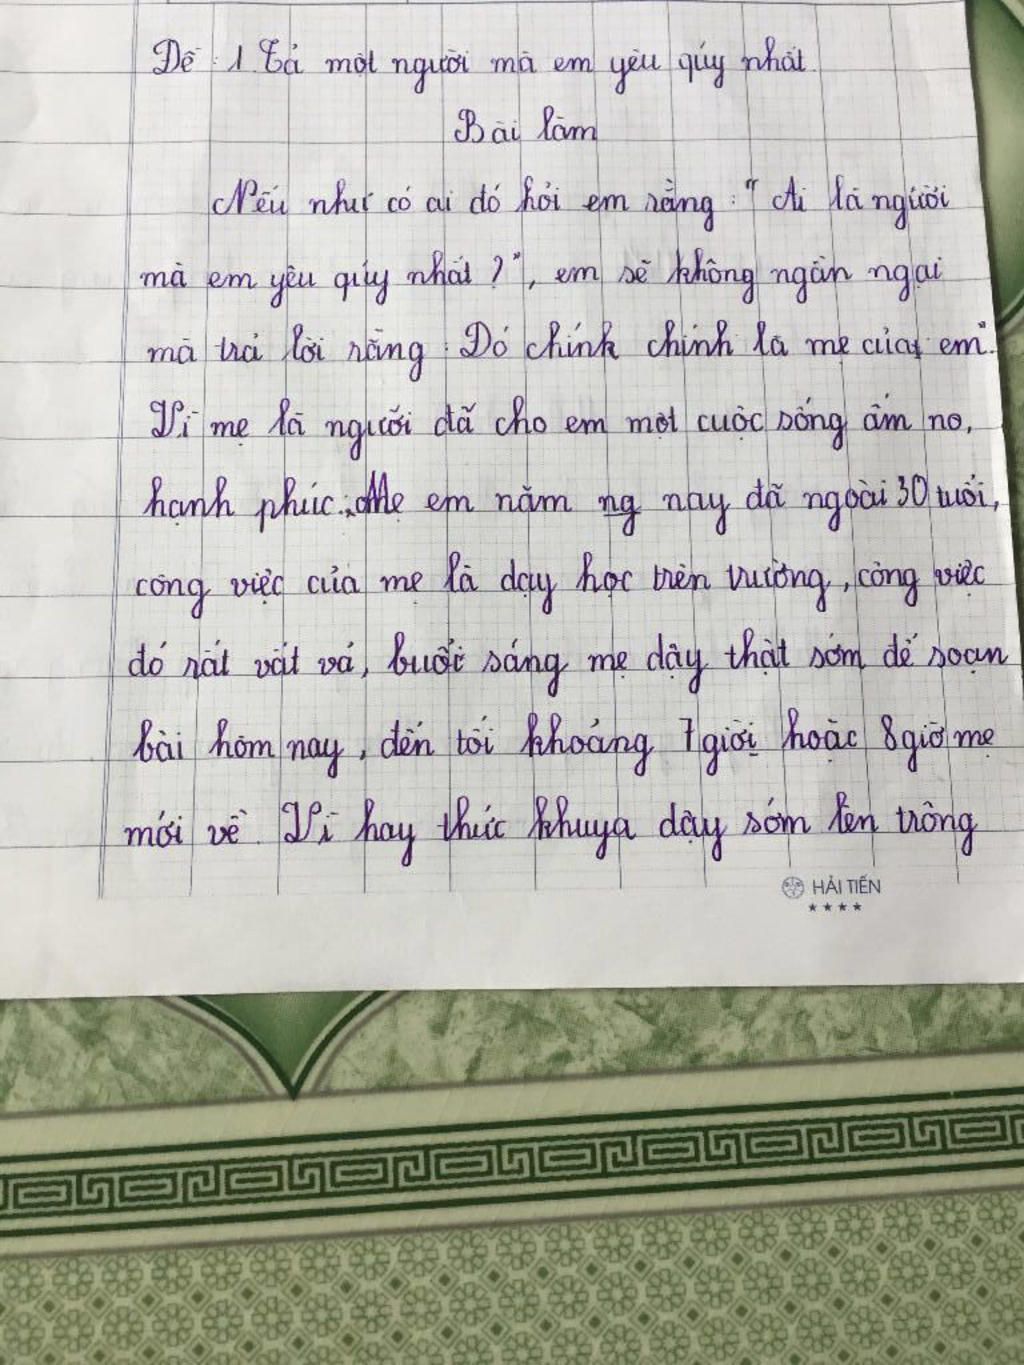 Đề : 1 Tả một người mà em yêu qúy nhất.
Bài làm
Nếu như có ai đó hỏi em rằng : " Ai là người
mà em yêu qúy nhất ? ", em sẽ không ngần ngại
mà trả lời rằng : Đó chính chính là mẹ của em".
Vì mẹ là người đã cho em một cuộc sống ấm no,
hạnh phúc. Mẹ em năm ng nay đã ngoài 30 tuổi,
công việc của mẹ là dạy học trên trường, công việc
đó rất vất vả, buổi sáng mẹ dậy thật sớm để soạn
bài hôm nay, đến tối khoảng 7 giời hoặc 8 giờ mẹ
mới về. Vì hay thức khuya dậy sớm lên trông
HẢI TIẾN